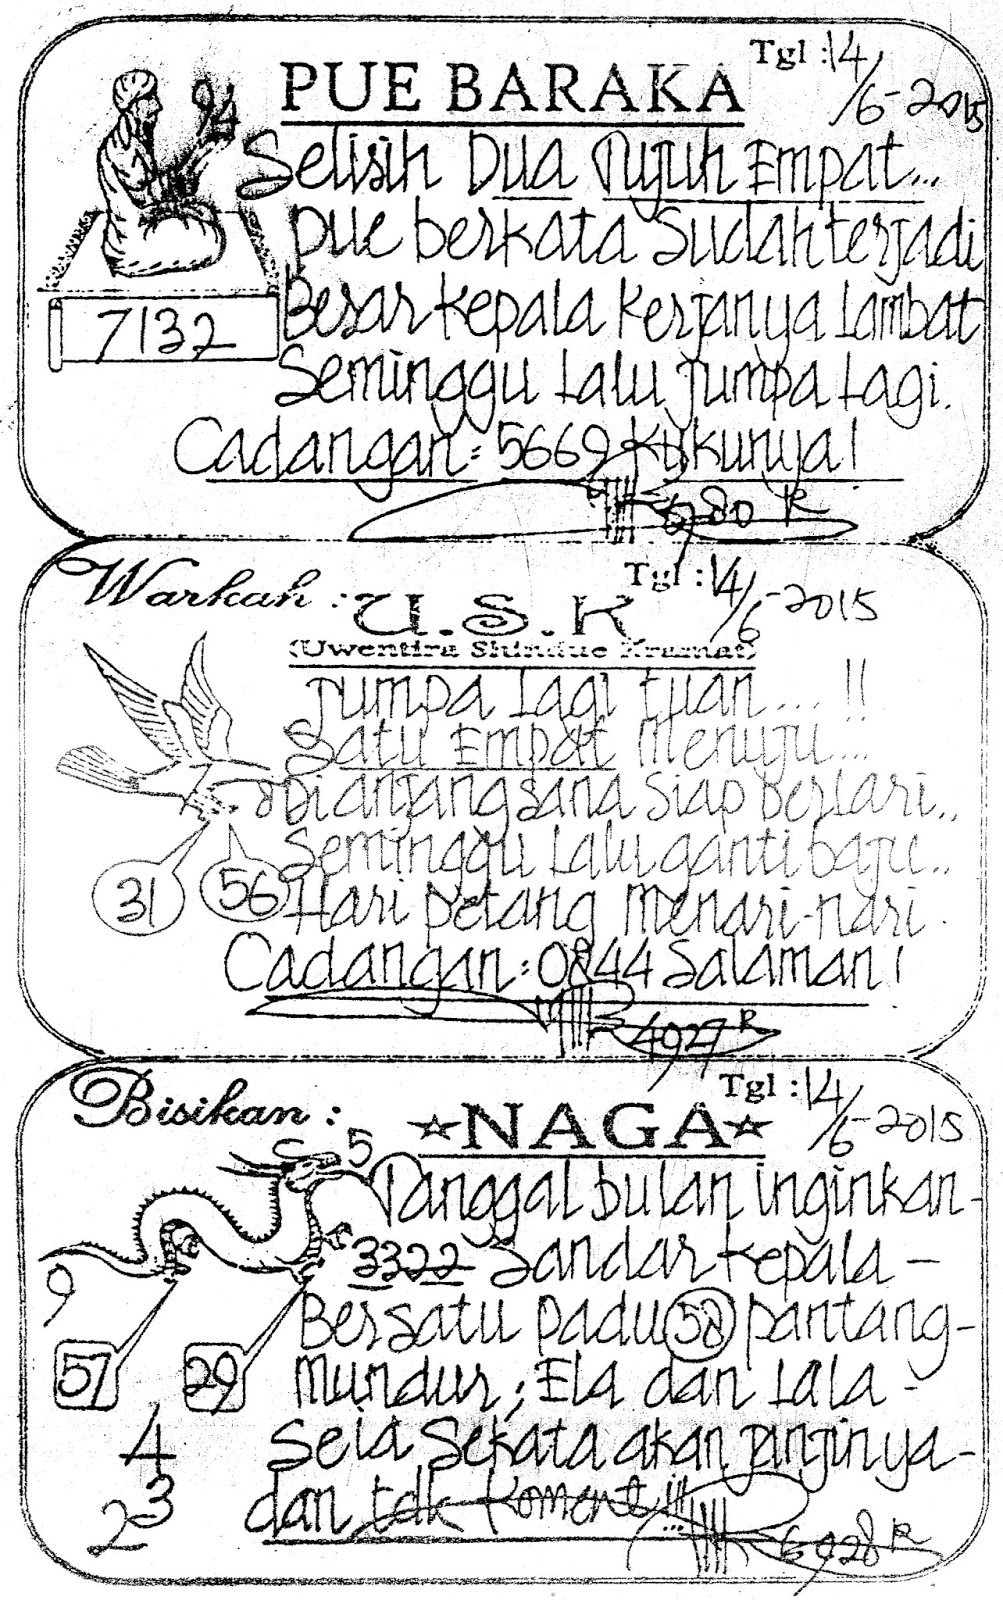 Tgl : 14/6-2015
PUE BARAKA
94
Selisih Dua Tujuh Empat...
Pue berkata Sudah terjadi
Besar Kepala Kerjanya Lambat
7132
Seminggu Lalu Jumpa Lagi.
Cadangan: 5669 Kukunya!
6980 R
Warkah :
U.S.K
Tgl : 14/6-2015
(Uwentira Shindue Kramat)
Jumpa Lagi tuan.... !!
Satu Empat Menuju...
8
Dianjangsana Siap berlari..
Seminggu Lalu ganti baju..
31 56
Hari Petang Menari-nari.
Cadangan: 0844 Salaman!
4927 R
Bisikan :
☆NAGA☆
Tgl : 14/6-2015
5
Tanggal bulan inginkan-
3322 Sandar Kepala-
9
Bersatu Padu 58 Pantang-
57 29
Mundur; Ela dan Lala-
4
Seia Sekata akan Janjinya-
3
2
dan tdk Koment!!!
6928 R